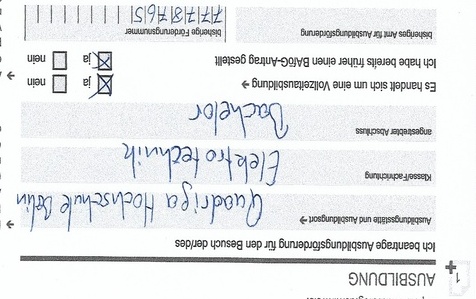 1 AUSBILDUNG
Ich beantrage Ausbildungsförderung für den Besuch der/des
Ausbildungsstätte und Ausbildungsort → Quadriga Hochschule Berlin
Klasse/Fachrichtung Elektrotechnik
angestrebter Abschluss Bachelor
Es handelt sich um eine Vollzeitausbildung → ja nein
Ich habe bereits früher einen BAföG-Antrag gestellt ja nein
bisheriges Amt für Ausbildungsförderung bisherige Förderungsnummer